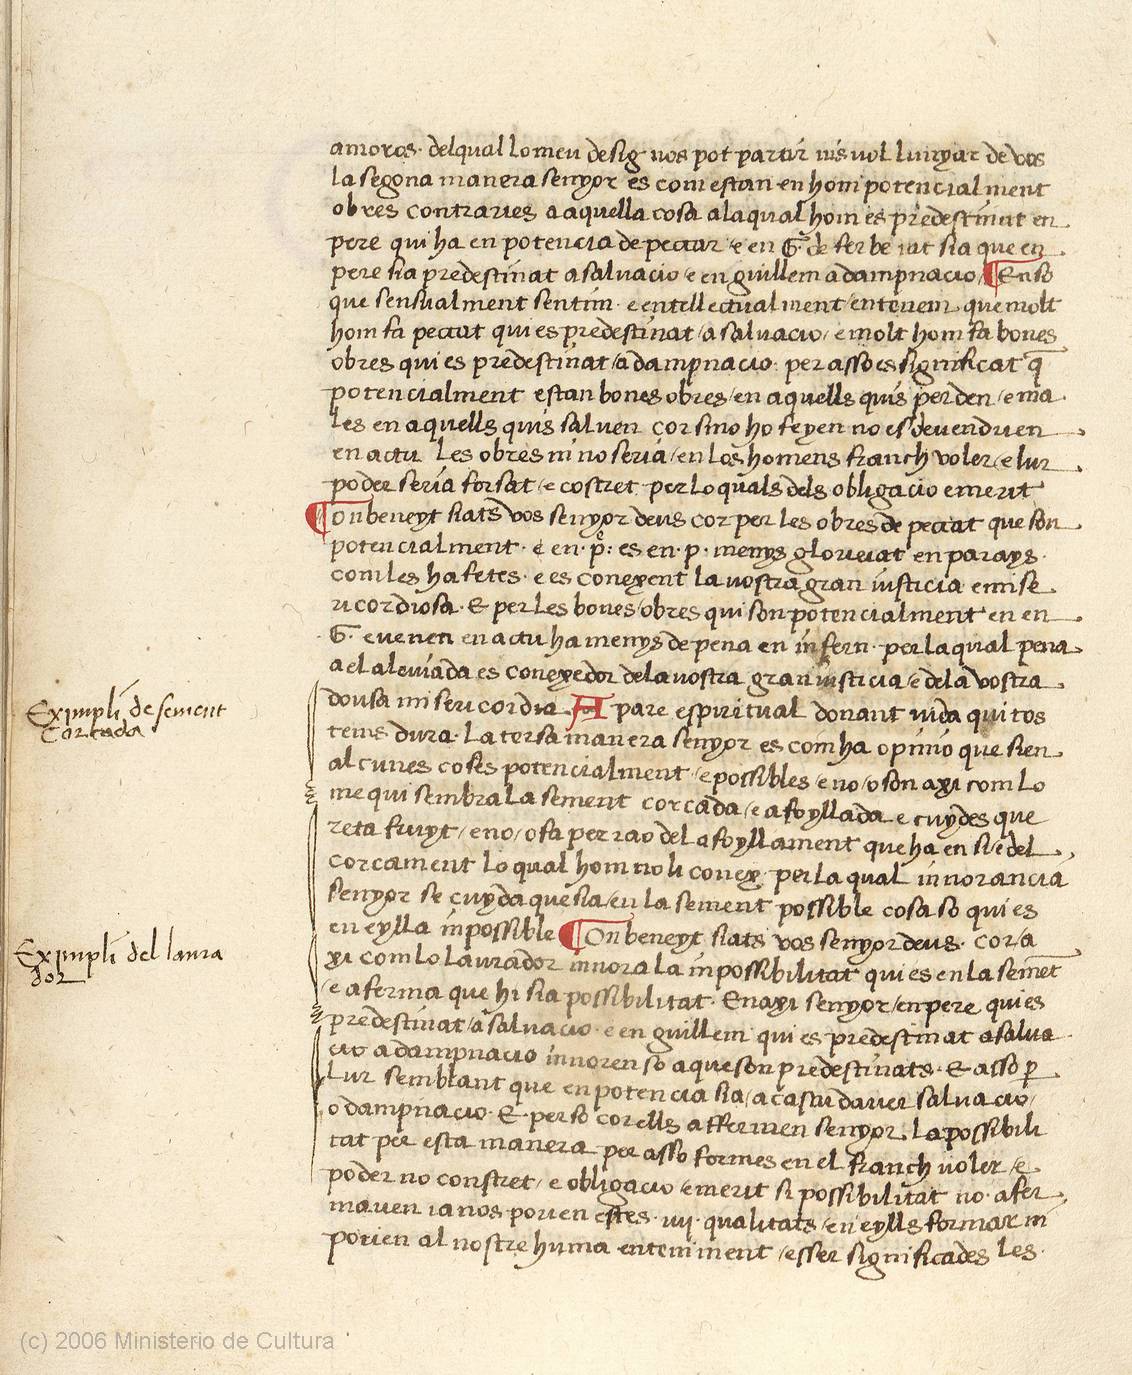 amoros· del qual lo meu desig nos pot partir nis vol lunyar de vos
la segona manera senyor es com estan en hom potencialment
obres contraries a aquella cosa a la qual hom es predestinat en
pere qui ha en potencia de peccar e en G. de fer be iat sia que en
pere sia predestinat a salvacio e en guillem a dampnacio / En so
que sensualment sentim· e entellectualment entenem que molt
hom fa peccat qui es predestinat / a salvacio / e molt hom fa bones
obres qui es predestinat / a dampnacio· per asso es significat q̄
potencialment estan bones obres / en aquells quis perden / e ma
les en aquells quis salven cor sino ho feyen no esdevendrien
en actu les obres ni no seria / en los homens franch voler / e lur
poder seria forsat / e costret per lo qual dels obligacio e merit
On beneyt siats vos senyor deus cor per les obres de peccat que son
potencialment· e en· p̱· es en· p· menys glorieiat en parays·
com les ha fetes· e es conexent la vostra gran iusticia e mise
ricordiosa· E per les bones / obres qui son potencialment en en
G· e venen en actu ha menys de pena en infern· per la qual pena
a el aleviada es conexedor de la vostra gran iusticia / e de la vostra
dousa misericordia A pare espiritual donant vida qui tos
tems dura· La tersa manera senyor es com ha opinio que sien
alcunes coses potencialment / e possibles / e no / o son axi com lo
me qui sembra la sement corcada / e afoyllada e cuydes que
reta fruyt / e no / o fa per rao del afoyllament que ha en si e del
corcament lo qual hom no li conex· per la qual innorancia
senyor se cuyda que sia / en la sement possible cosa so qui es
en eylla inpossible On beneyt siats vos senyor deus· cor / a
xi com lo laurador innora la inpossibilitat qui es en la semēt
/ e aferma que hi sia possibilitat· En axi senyor / en pere qui es
predestinat / a salvacio· e en guillem qui es predestinat a salva
cio a dampnacio innoren so a que son predestinats· E asso p̱
lur semblant que en potencia sia / a cascu daver salvacio /
o dampnacio· E per so cor ells affermen senyor la possibili
tat per esta manera per asso formes en el franch voler / e
poder no constret / e obligacio / e merit si possibilitat no afer
maven ia nos porien estes· iiij· qualitats / en eylls formar ni
porien al nostre huma enteniment / esser significades les·
Eximpli de sement
Corcada
Eximpli del laura
dor
(c) 2006 Ministerio de Cultura